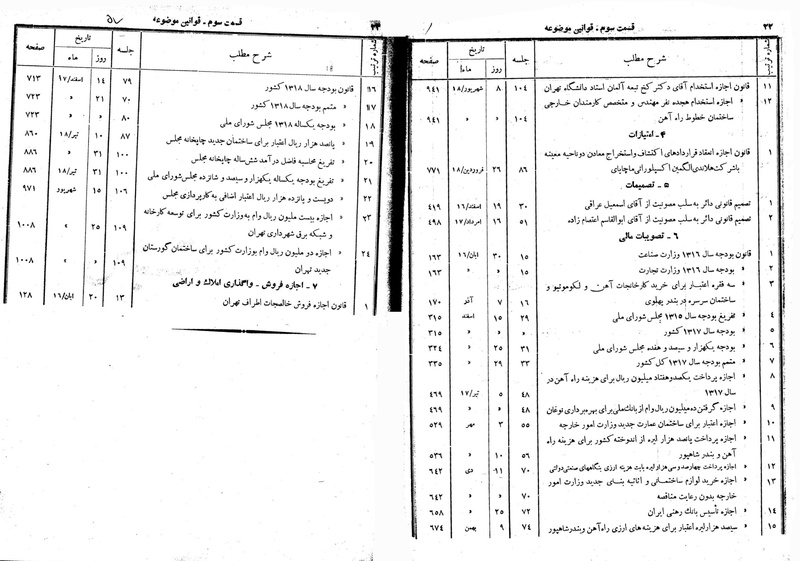 ۲۲ قسمت سوم ـ قوانین موضوعه
شماره ترتیب شرح مطلب جلسه تاریخ صفحه
روز ماه
۱۱ قانون اجازه استخدام آقای دکتر کخ تبعه آلمان استاد دانشگاه تهران ۱۰۴ ۸ شهریور/۱۸ ۹۴۱
۱۲ » اجازه استخدام هجده نفر مهندس و متخصص کارمندان خارجی
ساختمان خطوط راه آهن ۱۰۴ » » ۹۴۱
۴ ـ امتیازات
۱ قانون اجازه انعقاد قراردادهای اکتشاف و استخراج معادن دو ناحیه معینه
با شرکت هلاندی الگمین اکسپلوراتی ماچاپای ۸۶ ۲۶ فروردین/۱۸ ۷۷۱
۵ ـ تصمیمات
۱ تصمیم قانونی دائر به سلب مصونیت از آقای اسمعیل عراقی ۳۰ ۱۹ اسفند/۱۶ ۴۱۹
۲ تصمیم قانونی دائر به سلب مصونیت از آقای ابوالقاسم اعتصام زاده ۵۱ ۱۶ امرداد/۱۷ ۴۹۸
۶ ـ تصویبات مالی
۱ قانون بودجه سال ۱۳۱۶ وزارت صناعت ۱۵ ۳۰ آبان/۱۶ ۱۶۳
۲ » بودجه سال ۱۳۱۶ وزارت تجارت ۱۵ » » ۱۶۳
۳ » سه فقره اعتبار برای خرید کارخانجات آهن و لکوموتیو و
ساختمان سرسره در بندر پهلوی ۱۶ ۷ آذر ۱۷۰
۴ » تفریغ بودجه سال ۱۳۱۵ مجلس شورای ملی ۲۹ ۱۵ اسفند ۳۱۵
۵ » بودجه سال ۱۳۱۷ کشور » » » ۳۱۵
۶ » بودجه یکهزار و سیصد و هفده مجلس شورای ملی ۳۱ ۲۵ » ۳۲۴
۷ » متمم بودجه سال ۱۳۱۷ کل کشور ۳۳ ۲۹ » ۳۳۵
۸ » اجازه پرداخت یکصد و هفتاد میلیون ریال برای هزینه راه آهن در
سال ۱۳۱۷ ۴۸ ۵ تیر/۱۷ ۴۶۹
۹ » اجازه گرفتن ده میلیون ریال وام از بانک ملی برای بهره برداری نوغان ۴۸ » » ۴۶۹
۱۰ » اجازه اعتبار برای ساختمان عمارت جدید وزارت امور خارجه ۵۵ ۳ مهر ۵۲۹
۱۱ » اجازه پرداخت پانصد هزار لیره از اندوخته کشور برای هزینه راه
آهن و بندر شاهپور ۵۶ ۱۰ » ۵۳۶
۱۲ » اجازه پرداخت چهارصد و سی هزار لیره بابت هزینه ارزی بنگاههای صنعتی دولتی ۷۰ ۱۱ دی ۶۴۲
۱۳ » اجازه خرید لوازم ساختمانی و اثاثیه بنای جدید وزارت امور
خارجه بدون رعایت مناقصه ۷۰ » » ۶۴۲
۱۴ » اجازه تأسیس بانک رهنی ایران ۷۲ ۲۵ » ۶۵۸
۱۵ » سیصد هزار لیره اعتبار برای هزینه های ارزی راه آهن و بندر شاهپور ۷۴ ۹ بهمن ۶۷۴
قسمت سوم ـ قوانین موضوعه
شماره ترتیب شرح مطلب جلسه تاریخ صفحه
روز ماه
۱۶ قانون بودجه سال ۱۳۱۸ کشور ۷۹ ۱۴ اسفند/۱۷ ۷۱۳
۱۷ » متمم بودجه سال ۱۳۱۸ کشور ۷۰ ۲۱ » ۷۲۳
۱۸ » بودجه یکساله ۱۳۱۸ مجلس شورای ملی ۸۰ » » ۷۲۳
۱۹ » پانصد هزار ریال اعتبار برای ساختمان جدید چاپخانه مجلس ۸۷ ۱۰ تیر/۱۸ ۸۶۰
۲۰ » تفریغ محاسبه فاضل درآمد شش ساله چاپخانه مجلس ۱۰۰ ۳۱ » ۸۸۶
۲۱ » تفریغ بودجه یکساله یکهزار و سیصد و شانزده مجلس شورای ملی ۱۰۰ ۳۱ تیر/۱۸ ۸۸۶
۲۲ » دویست و پانزده هزار ریال اعتبار اضافی به کارپردازی مجلس ۱۰۶ ۱۵ شهریور ۹۷۱
۲۳ » اجازه بیست ملیون ریال وام به وزارت کشور برای توسعه کارخانه
و شبکه برق شهرداری تهران ۱۰۹ ۲۵ » ۱۰۰۸
۲۴ » اجازه دو ملیون ریال وام بوزارت کشور برای ساختمان گورستان
جدید تهران ۱۰۹ » » ۱۰۰۸
۷ ـ اجازه فروش ـ واگذاری املاک و اراضی
۱ قانون اجازه فروش خالصجات اطراف تهران ۱۳ ۲۰ آبان/۱۶ ۱۲۸